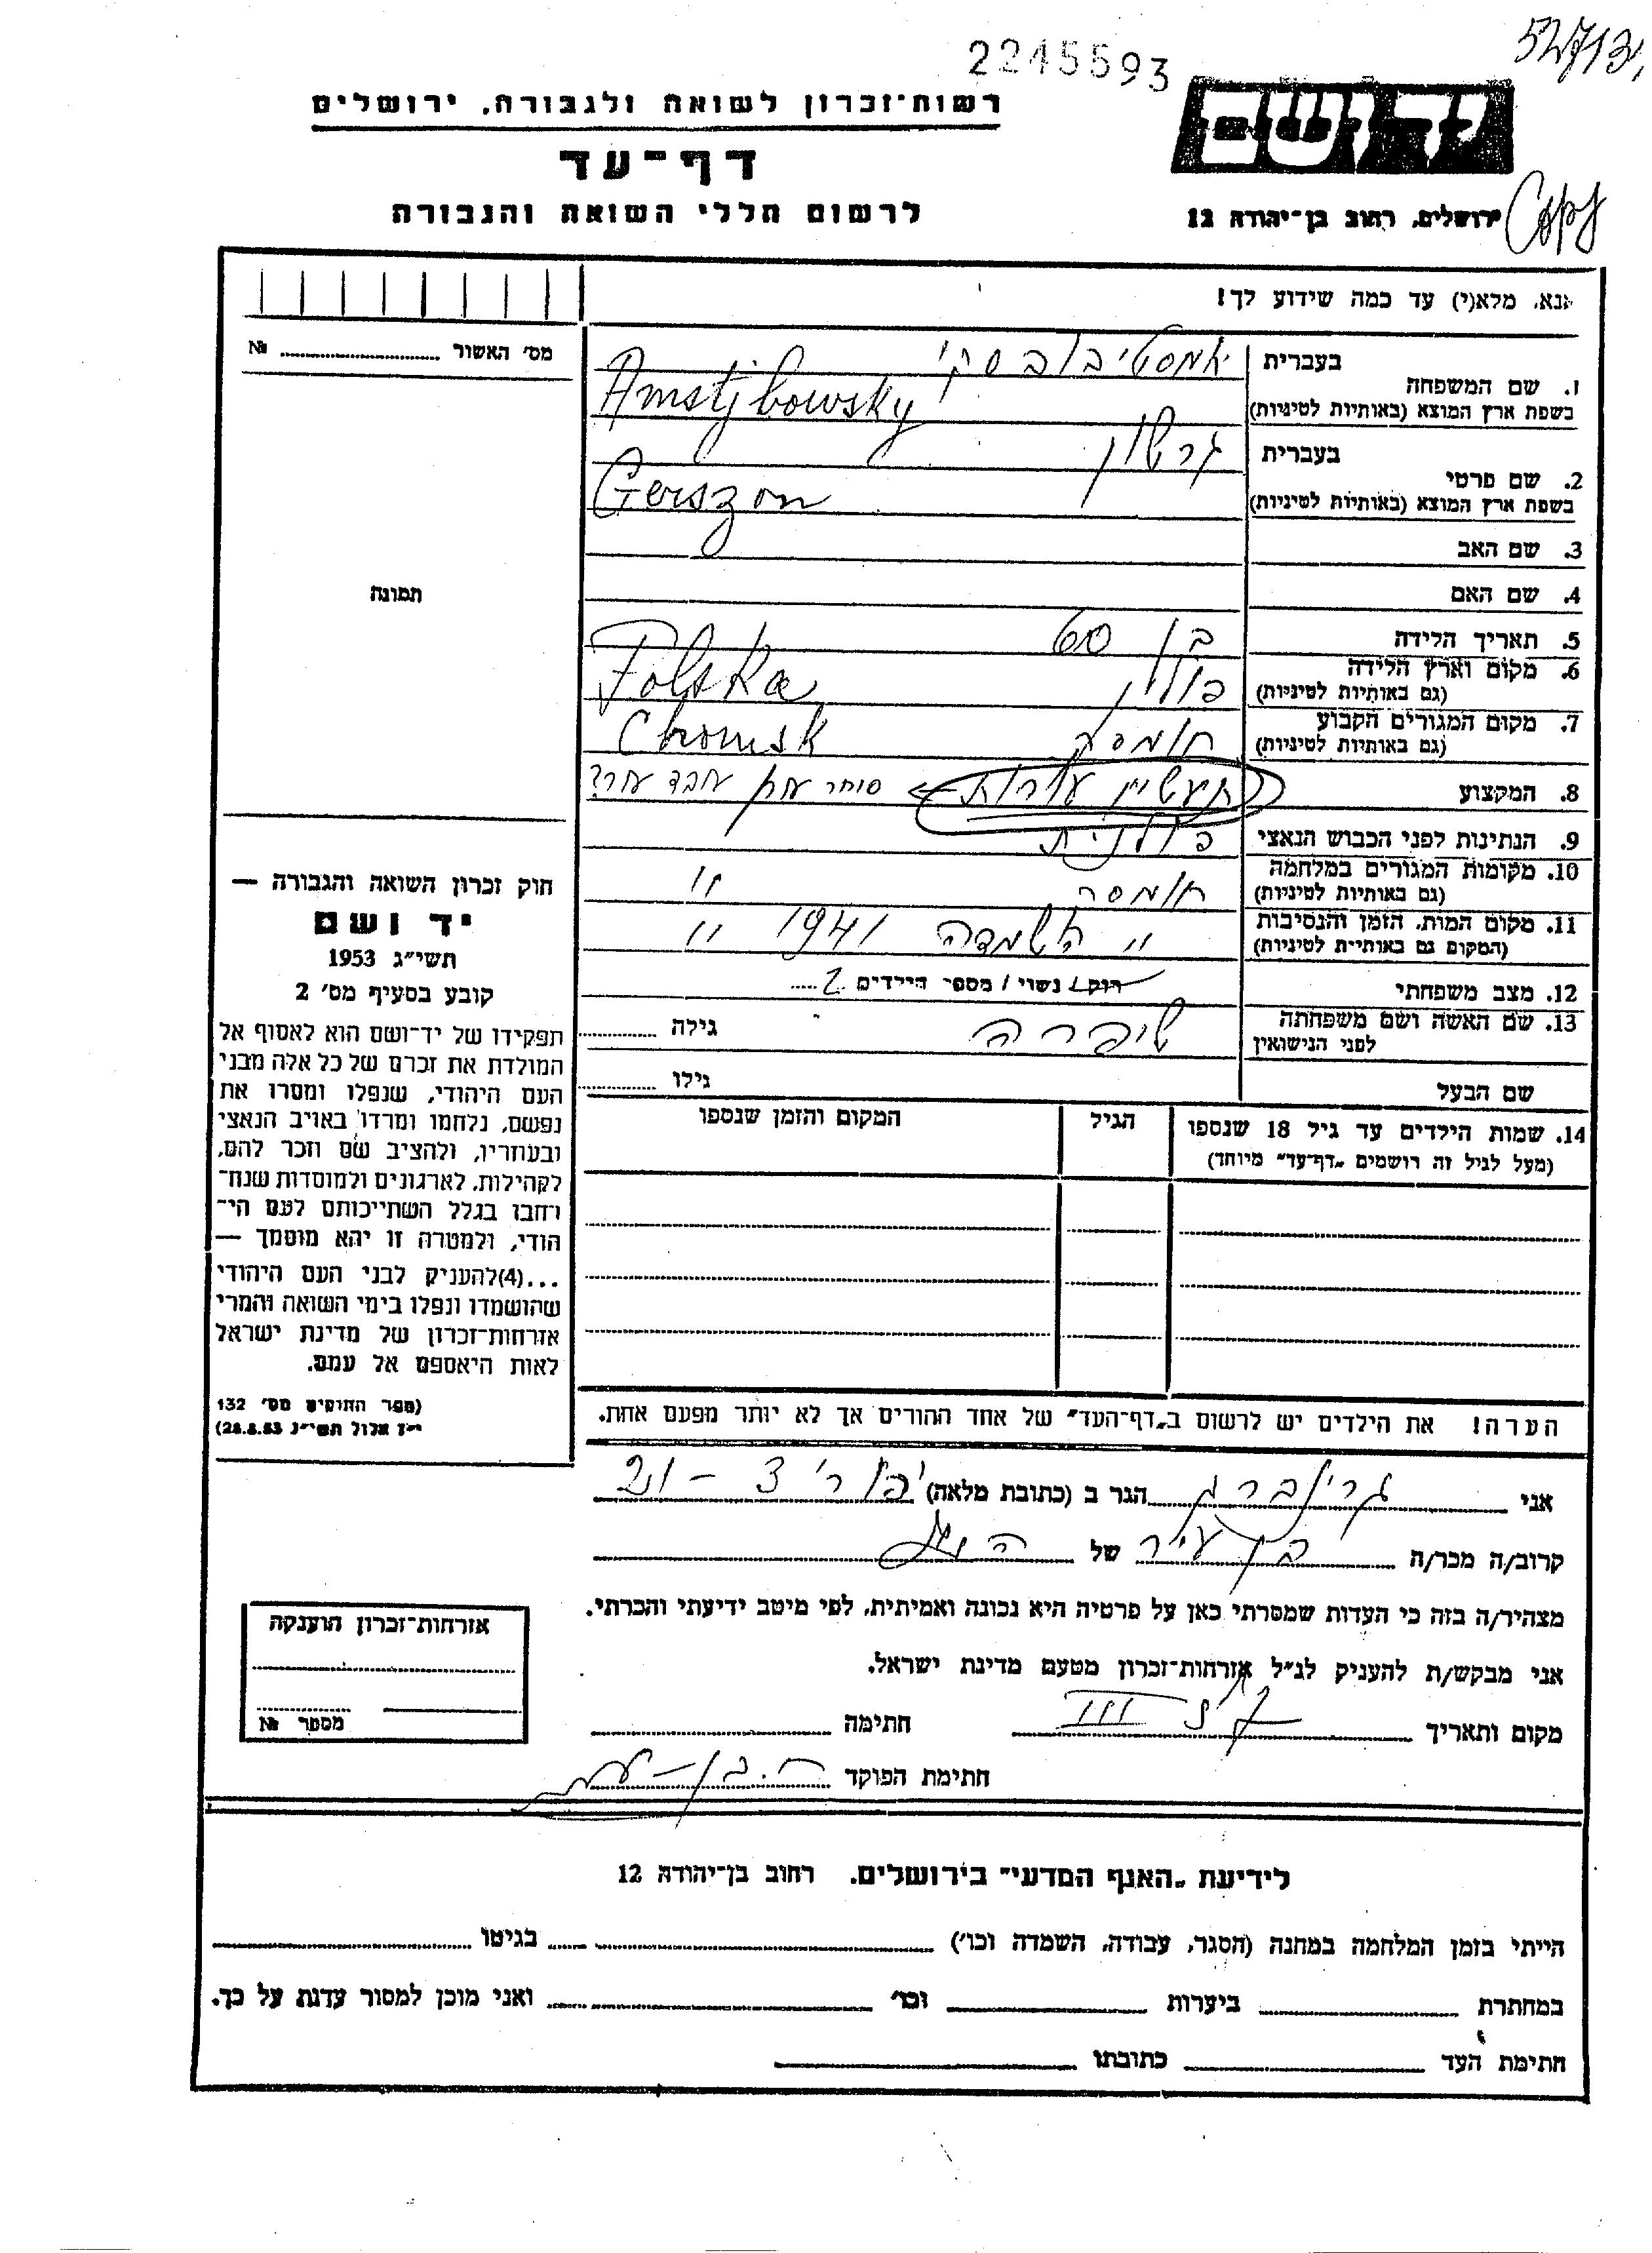 52713
2245593
יד ושם
רשות־זכרון לשואה ולגבורה, ירושלים
דף־עד
לרשום חללי השואה והגבורה
ירושלים, רחוב בן־יהודה 12
Copy
אנא, מלא(י) עד כמה שידוע לך!
מס׳ האשור ........ №
תמונה
בעברית אמסטיבובסקי
1. שם המשפחה
בשפת ארץ המוצא (באותיות לטיניות) Amstjbowsky
בעברית גרשון
2. שם פרטי
בשפת ארץ המוצא (באותיות לטיניות) Gerszon
3. שם האב
4. שם האם
5. תאריך הלידה בן 60
6. מקום וארץ הלידה פולין Polska
(גם באותיות לטיניות)
7. מקום המגורים הקבוע חומסק Chomsk
(גם באותיות לטיניות)
8. המקצוע תעשיין עורות ← סוחר עור, עובד עור?
9. הנתינות לפני הכבוש הנאצי פולנית
10. מקומות המגורים במלחמה חומסק "
(גם באותיות לטיניות)
11. מקום המות, הזמן והנסיבות " השמדה 1941 "
(המקום גם באותיות לטיניות)
12. מצב משפחתי רווק / נשוי / מספר הילדים 2
13. שם האשה ושם משפחתה שיפרה גילה
לפני הנישואין
שם הבעל גילו
14. שמות הילדים עד גיל 18 שנספו הגיל המקום והזמן שנספו
(מעל לגיל זה רושמים „דף־עד" מיוחד)
הערה! את הילדים יש לרשום ב„דף־העד" של אחד ההורים אך לא יותר מפעם אחת.
חוק זכרון השואה והגבורה —
יד ושם
תשי״ג 1953
קובע בסעיף מס׳ 2
תפקידו של יד־ושם הוא לאסוף אל
המולדת את זכרם של כל אלה מבני
העם היהודי, שנפלו ומסרו את
נפשם, נלחמו ומרדו באויב הנאצי
ובעוזריו, ולהציב שם וזכר להם,
לקהילות, לארגונים ולמוסדות שנח־
רחבו בגלל השתייכותם לעם הי־
הודי, ולמטרה זו יהא מוסמך —
...(4)להעניק לבני העם היהודי
שהושמדו ונפלו בימי השואה והמרי
אזרחות־זכרון של מדינת ישראל
לאות היאספם אל עמם.
(ספר החוקים מס׳ 132
י״ז אלול תשי״ג 28.8.53)
אני גרינברג הגר ב (כתובת מלאה)
קרוב/ה מכר/ה בן עיר של
מצהיר/ה בזה כי העדות שמסרתי כאן על פרטיה היא נכונה ואמיתית, לפי מיטב ידיעתי והכרתי.
אני מבקש/ת להעניק לנ״ל אזרחות־זכרון מטעם מדינת ישראל.
מקום ותאריך III חתימה
חתימת הפוקד
אזרחות־זכרון הוענקה
מספר №
לידיעת „האגף המדעי" בירושלים. רחוב בן־יהודה 12
הייתי בזמן המלחמה במחנה (הסגר, עבודה, השמדה וכו׳) בגיטו
במחתרת ביערות וכו׳ ואני מוכן למסור עדות על כך.
חתימת העד כתובתו